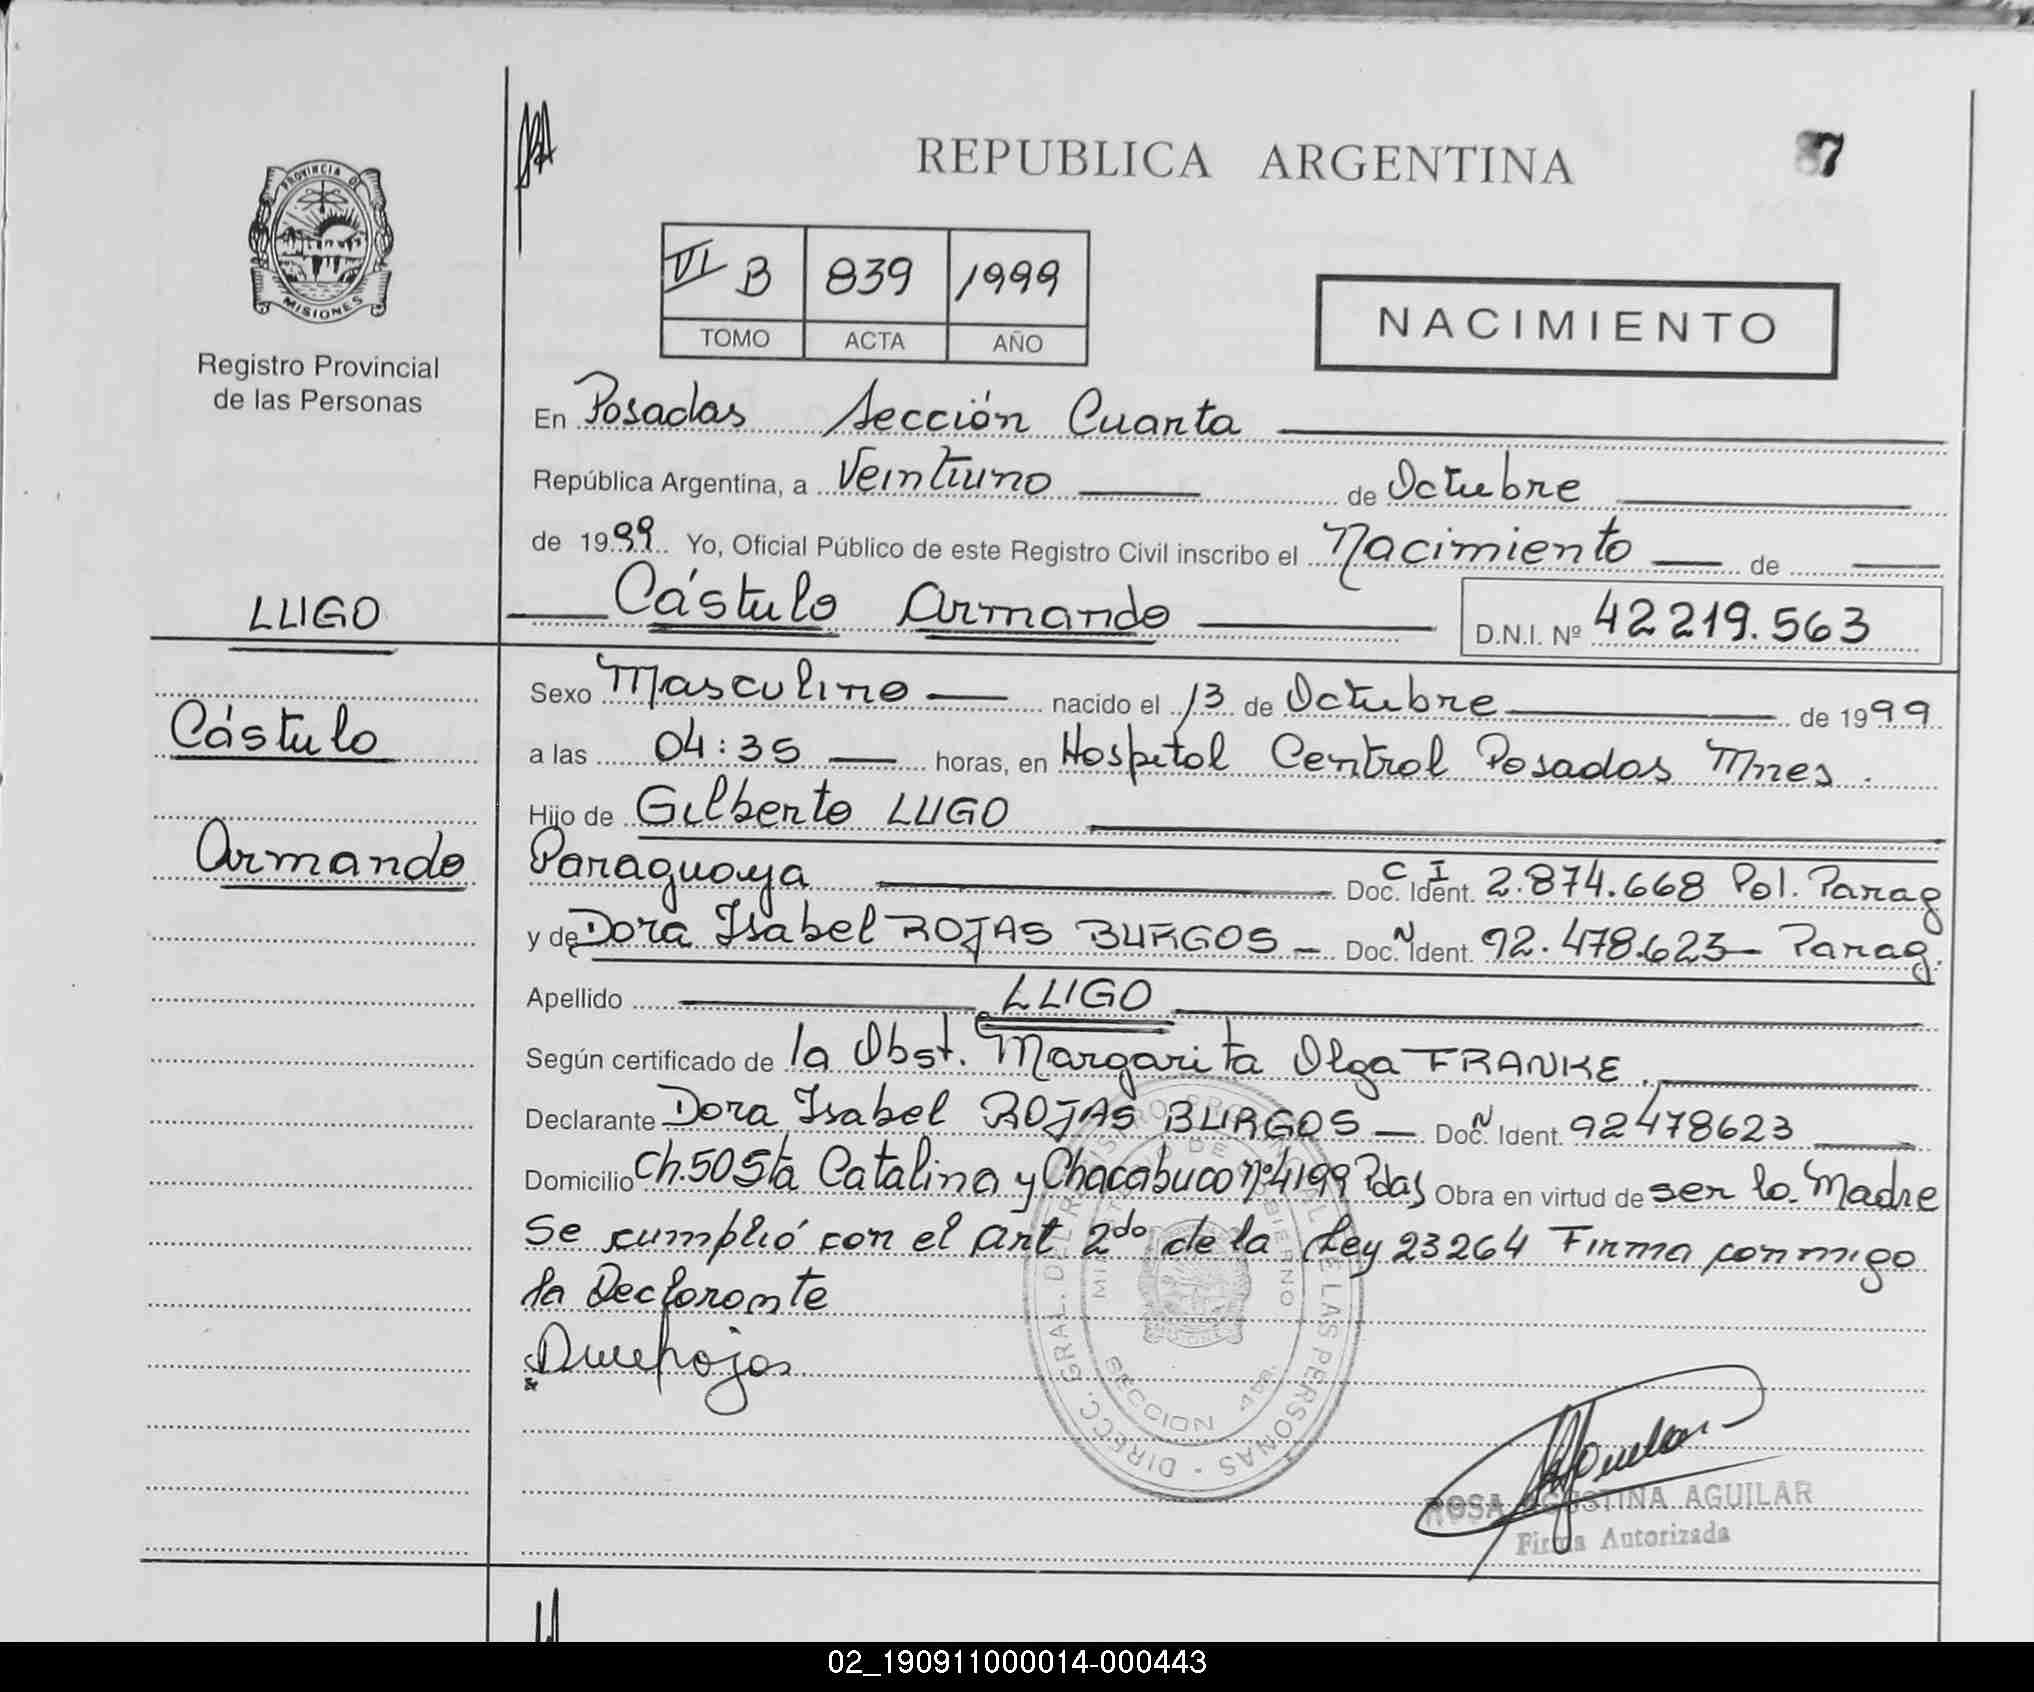 REPUBLICA ARGENTINA
87
PROVINCIA DE
MISIONES
Registro Provincial
de las Personas
VI B 839 1999
TOMO ACTA AÑO
NACIMIENTO
En Posadas Sección Cuarta
República Argentina, a Veintiuno de Octubre
de 1999 Yo, Oficial Público de este Registro Civil inscribo el Nacimiento de
Cástulo Armando D.N.I. Nº 42219.563
LUGO
Cástulo
Armando
Sexo Masculino nacido el 13 de Octubre de 1999
a las 04:35 horas, en Hospital Central Posadas Mnes.
Hijo de Gilberto LUGO
Paraguaya Doc. Ident. C I 2.874.668 Pol. Parag
y de Dora Isabel ROJAS BURGOS Doc. N Ident. 92.478.623 Parag.
Apellido LUGO
Según certificado de la Obst. Margarita Olga FRANKE.
Declarante Dora Isabel ROJAS BURGOS Doc. N Ident. 92478623
Domicilio Ch.50 Sta Catalina y Chacabuco nº4199 Pdas Obra en virtud de ser la Madre
Se cumplió con el art 2do de la Ley 23264 Firma conmigo
la Declarante
DIRECC. GRAL. DEL REGISTRO PROVINCIAL DE LAS PERSONAS
MINISTERIO DE GOBIERNO
SECCION 4ta.
MISIONES
ROSA AGUSTINA AGUILAR
Firma Autorizada
02_190911000014-000443